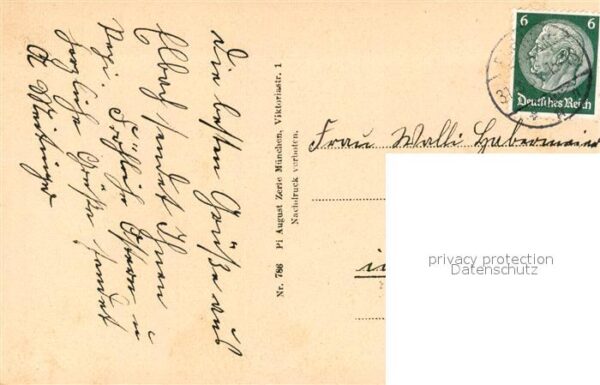 Die besten Grüße aus
sendet Ihnen
Fröhliche Ostern u
herzliche Grüße sendet
Nr. 786 Pi August Zerle München, Viktoriastr. 1
Nachdruck verboten.
6 6
Deutsches Reich
Frau Walli Habermeier
in
privacy protection
Datenschutz